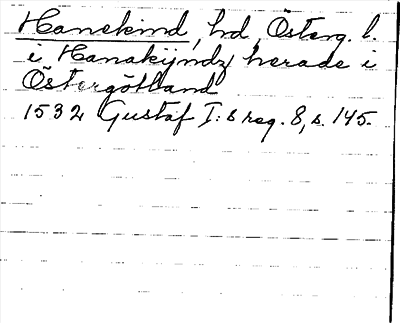 Hanekind, hd, Österg. l.
i Hanakijndz herade i
Östergötland
1532 Gustaf I:s reg. 8, s. 145.